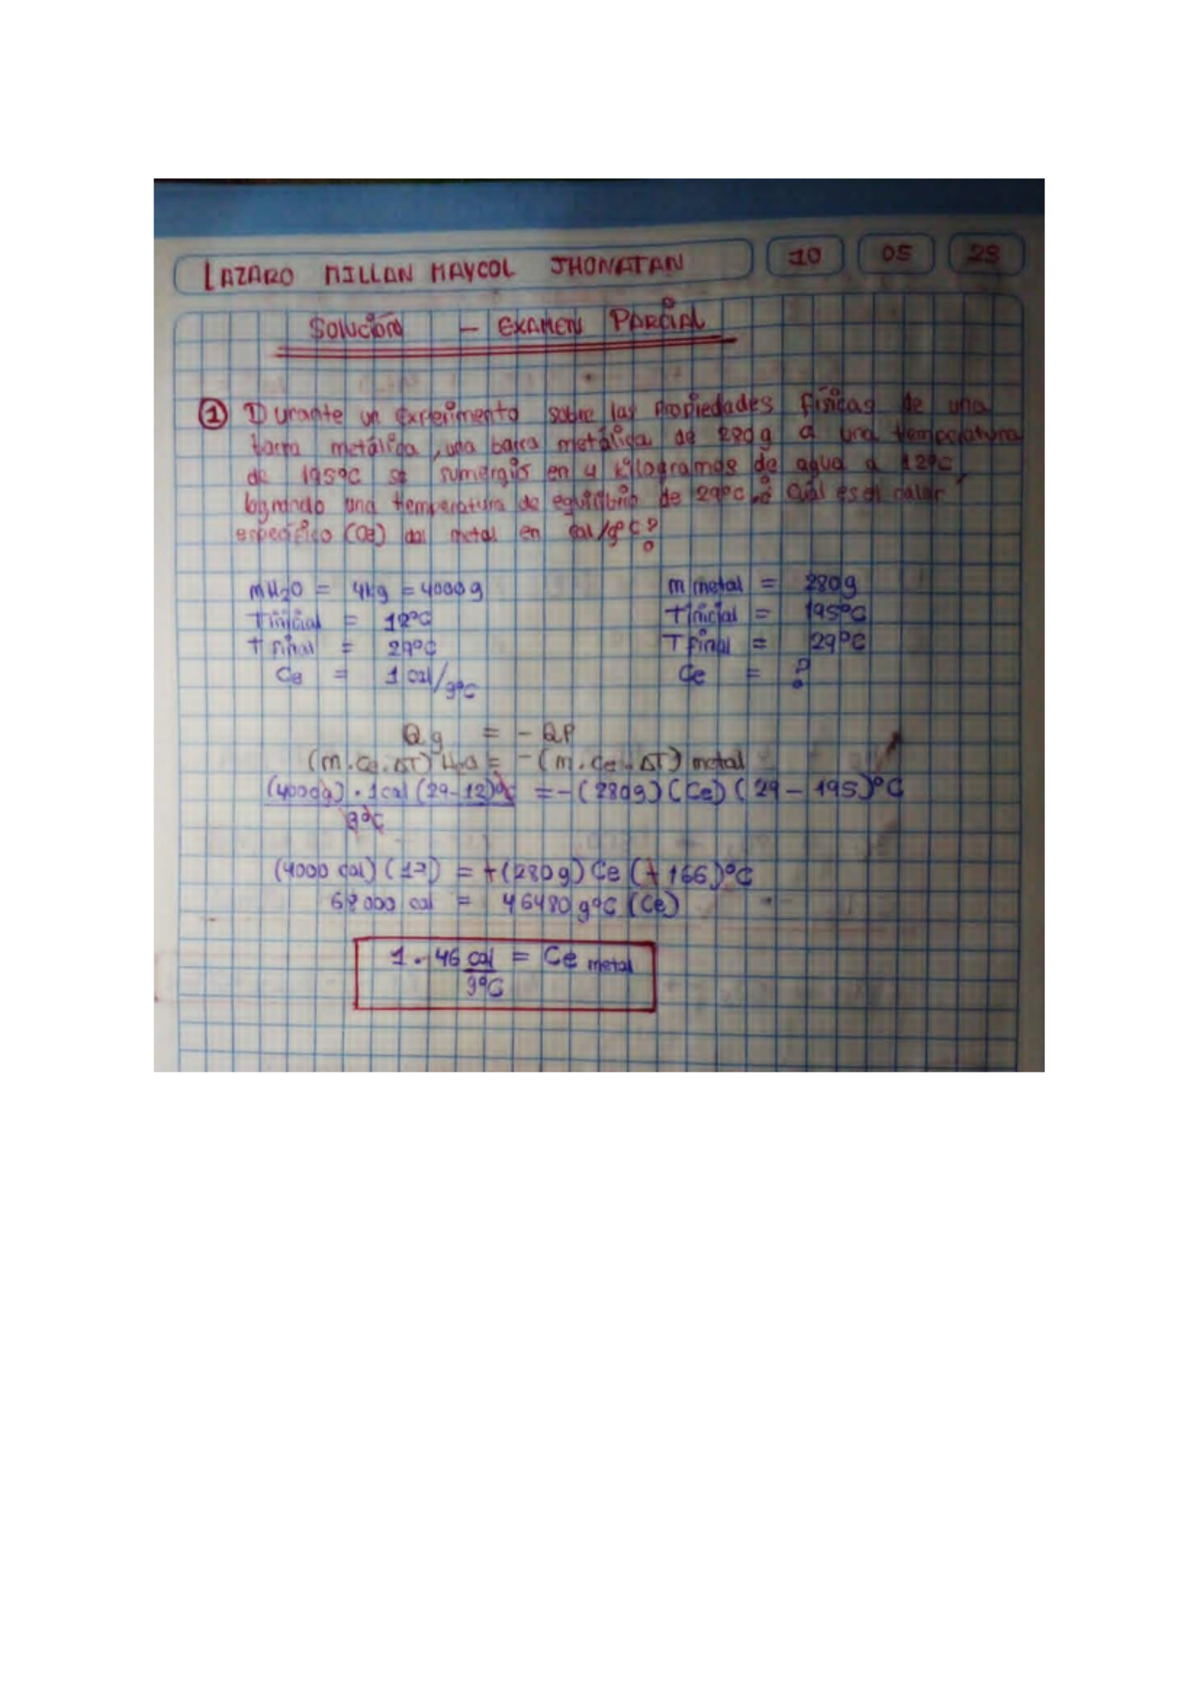 LAZARO MILLAN MAYCOL JHONATAN 10 05 23
SOLUCIÓN - EXAMEN PARCIAL
① Durante un experimento sobre las propiedades físicas de una
barra metálica, una barra metálica de 280g a una temperatura
de 195°C se sumergió en 4 kilogramos de agua a 12°C,
logrando una temperatura de equilibrio de 29°C ¿Cuál es el calor
específico (Ce) del metal en cal/g°C?
mH2O = 4kg = 4000g
Tinicial = 12°C
T final = 29°C
Ce = 1 cal/g°C
m metal = 280g
Tinicial = 195°C
T final = 29°C
Ce = ?
Qg = - QP
(m.Ce.ΔT) H2O = -(m.Ce.ΔT) metal
(4000g) · 1cal (29-12)°C = -(280g) (Ce) (29 - 195)°C
g°C
(4000 cal) (17) = +(280g) Ce (+166)°C
68000 cal = 46480 g°C (Ce)
1.46 cal = Ce metal
g°C